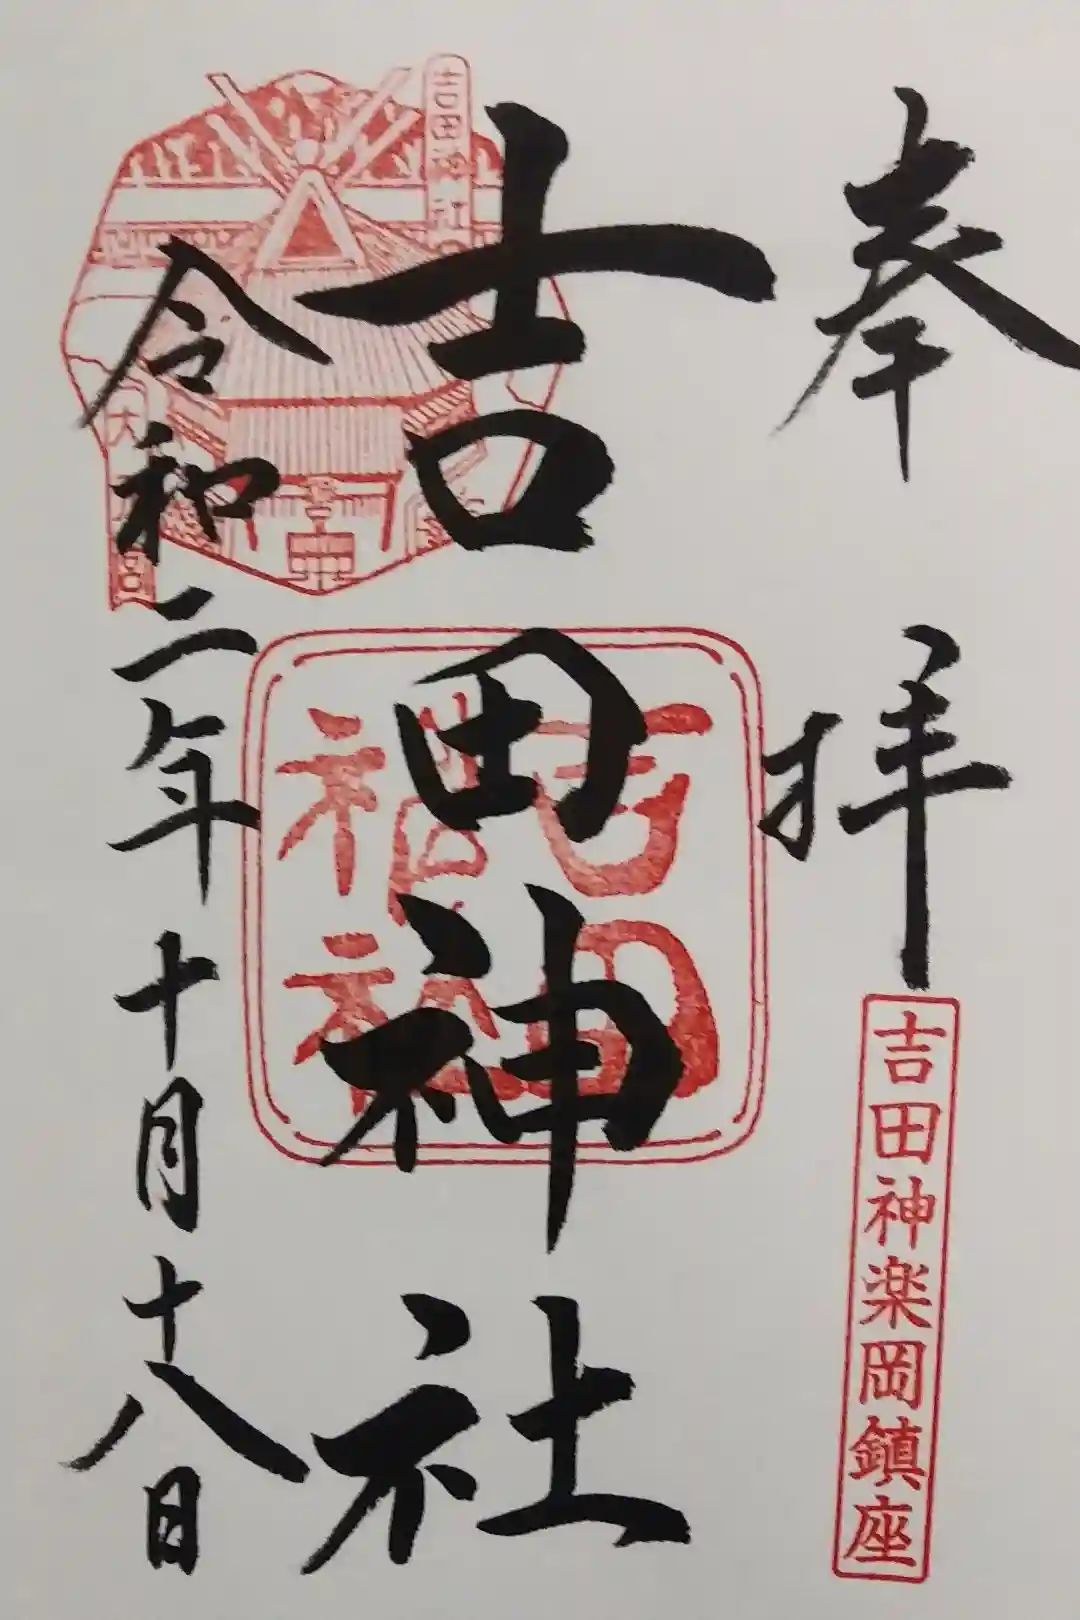 奉拝
吉田神楽岡鎮座
吉田神社
吉田神社
吉田神社
令和二年十月十八日
大元宮